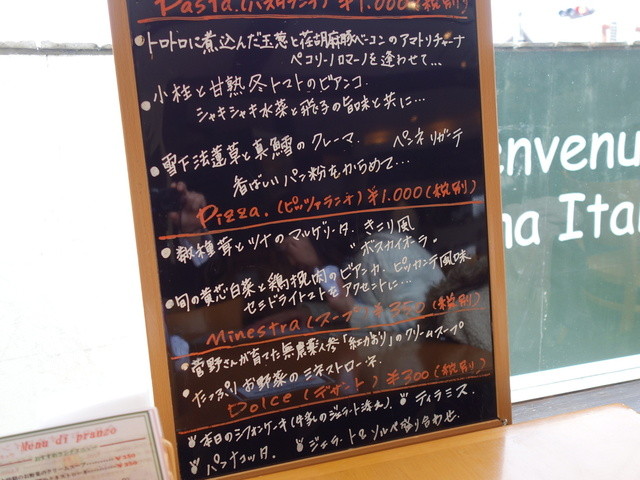 Pasta. (パスタランチ) ¥1.000 (税別)
トロトロに煮込んだ玉葱と荏胡麻豚ベーコンのアマトリチャーナ
ペコリーノロマーノを逢わせて...
小柱と甘熟冬トマトのビアンコ.
シャキシャキ水菜と飛子の旨味と共に...
雪下法蓮草と真鱈のクレーマ. ペンネリガーテ
香ばしいパン粉をからめて...
Pizza. (ピッツァランチ) ¥1.000 (税別)
数種茸とツナのマルゲリータ. きこり風
"ボスカイオーラ"
旬の黄芯白菜と鶏挽肉のビアンカ. ピッカンテ風味
セミドライトマトをアクセントに...
Minestra (スープ) ¥350 (税別)
菅野さんが育てた無農薬人参「紅かおり」のクリームスープ
たっぷりお野菜のミネストローネ.
Dolce (デザート) ¥300 (税別)
本日のシフォンケーキ (自家のジェラート添え). ティラミス
パンナコッタ. ジェラートとソルベ盛り合わせ.
envenu
na Ital
Menu di pranzo